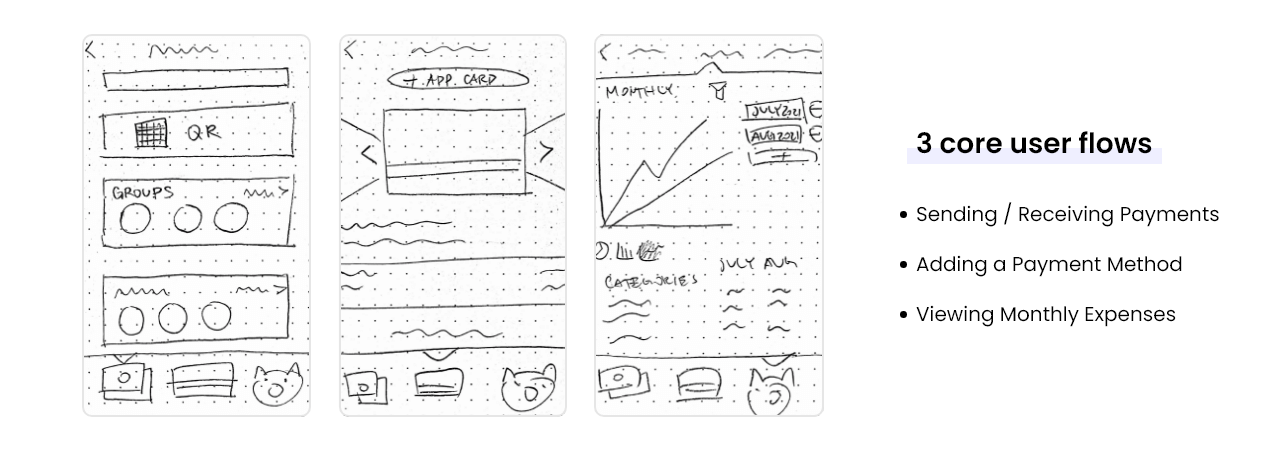 QR
GROUPS
+ APP. CARD
MONTHLY
JULY 2021
AUG 2021
+
CATEGORIES
JULY AUG
3 core user flows
• Sending / Receiving Payments
• Adding a Payment Method
• Viewing Monthly Expenses